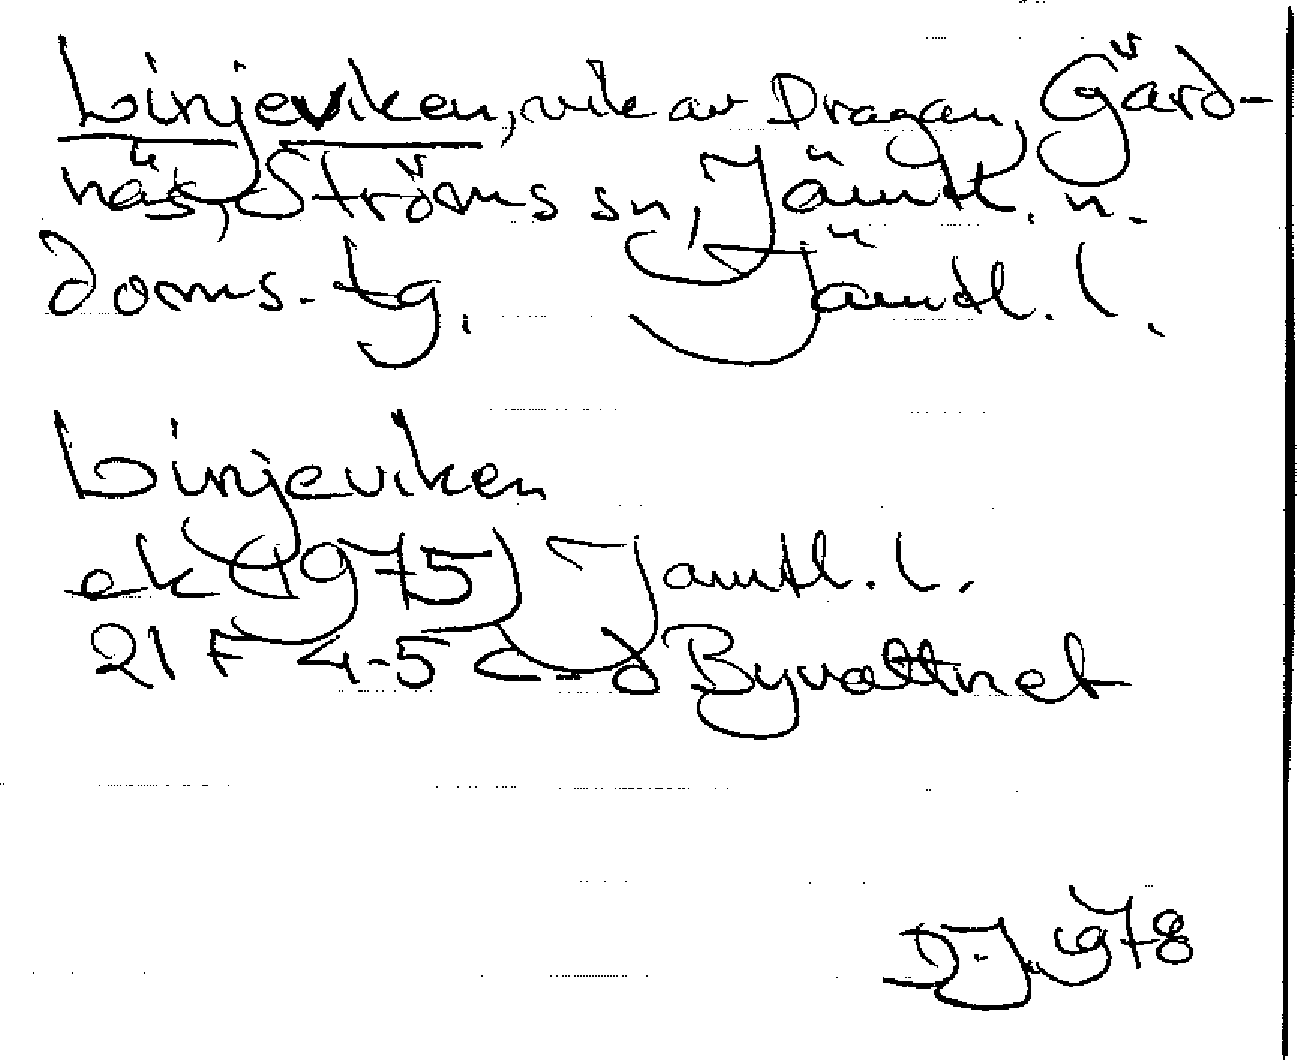 Linjeviken, vik av Dragan, Gärd-
näs, Ströms sn, Jämtl. n.
doms. tg. Jämtl. l.
Linjeviken
ek (1975) Jämtl. l.
21 F 4-5 c-d Byvattnet
D.J. 1978